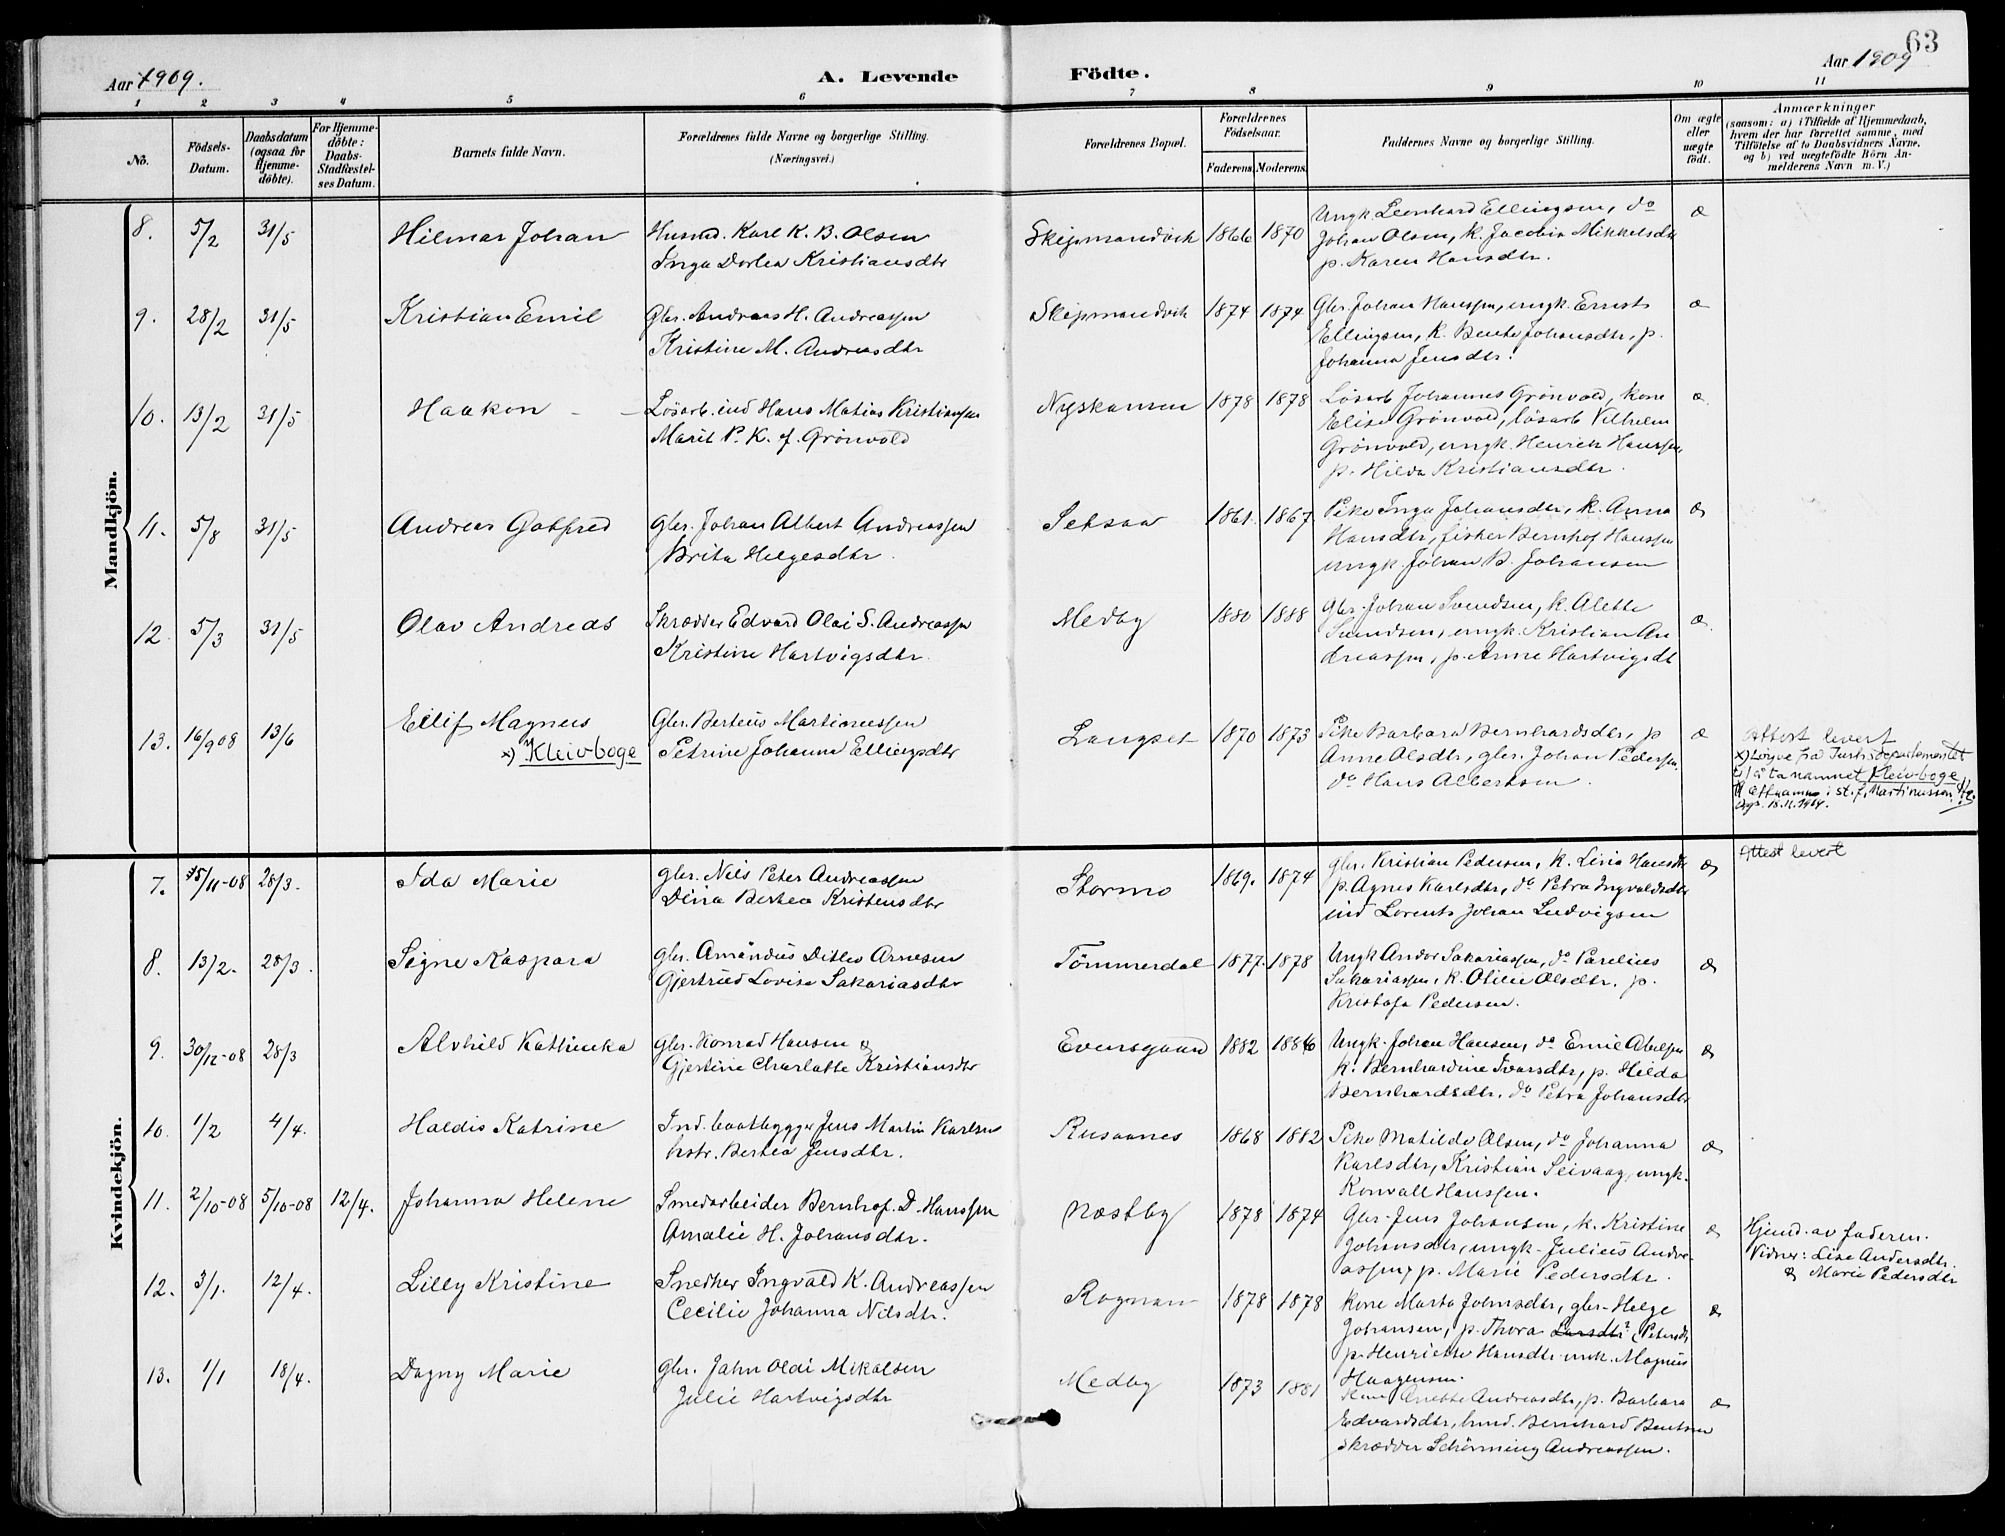 63
Aar 1909.
A. Levende
Födte.
Aar 1909
1 2 3 4 5 6 7 8 9 10 11
No.
Födsels-Datum.
Daabsdatum (ogsaa for Hjemme-döbte).
For Hjemme-döbte: Daabs-Stadfæstel-ses Datum.
Barnets fulde Navn.
Forældrenes fulde Navne og borgerlige Stilling.
(Næringsvei.)
Forældrenes Bopæl.
Forældrenes Födselsaar.
Faderens. Moderens.
Faddernes Navne og borgerlige Stilling.
Om ægte eller uægte födt.
Anmærkninger
(saasom: a) i Tilfælde af Hjemmedaab, hvem der har forrettet samme, med Tilföielse af to Daabsvidners Navne, og b) ved uægtefödte Börn An-melderens Navn m. V.)
Mandkjön.
8. 5/2 31/5 Hilmar Johan
Husmd. Karl K. B. Olsen
Inga Dorlea Kristiansdtr
Skipmandvik 1866 1870
Ungk. Leonhard Ellingsen, do
Johan Olsen, k. Jacobia Mikkelsdtr
p. Karen Hansdtr.
æ
9. 28/2 31/5 Kristian Emil
Gbr. Andreas H. Andreassen
Kristine M. Andreasdtr
Skipmandvik 1874 1874
Gbr. Johan Hanssen, ungk. Ernst
Ellingsen, k. Bente Johansdtr, p.
Johanna Jensdtr.
æ
10. 13/2 31/5 Haakon
Løsarb. ind Hans Matias Kristiansen
Marit P. K. f. Grönvold
Nyeskansen 1878 1878
Løsarb Johannes Grønvold, kone
Elise Grønvold, løsarb Vilhelm
Grønvold, ungk. Henrik Hanssen,
p. Hilda Kristiansdtr.
æ
11. 5/8 31/5 Andreas Gotfred
gbr. Johan Albert Andreassen
Brita Helgesdtr.
Setsaa 1861. 1867
Pike Inga Johansdtr, k. Anna
Hansdtr, fisker Bernhof Hanssen
ungk. Johan B. Johansen
æ
12. 5/3 31/5 Olav Andreas
Skrædder Edvard Olai S. Andreassen
Kristine Hartvigsdtr.
Medby 1880 1888
Gbr. Johan Svendsen, k. Alette
Svendsen, ungk. Kristian An
dreassen, p. Anne Hartvigsdt
æ
13. 16/9 08 13/6 Eilif Magnus
x) Kleivboge
Gbr. Berteus Martinussen
Petrine Johanna Ellingsdtr
Langset 1870 1873
Pike Barbara Bernhardsdtr, p
Anne Olsdtr, gbr. Johan Pedersen,
do Hans Albertsen.
æ
Attest levert
x) Løyve frå Justisdepartementet
til å ta namnet Kleivboge
ættnamn i st. f. Martinussen.
18.11.1964.
Kvindekjön.
7. 15/11-08 28/3. Ida Marie
gbr. Nils Peter Andreassen
Dina Bertea Kristensdtr
Stormo 1869. 1874
gbr. Kristian Pedersen, k. Lina Hansdtr
p. Agnes Karlsdtr, do Petra Ingvaldsdtr
ind Lorents Johan Ludvigsen
æ
Attest levert
8. 13/2. 28/3. Signe Kaspara
gbr. Amandus Ditlev Arnesen
Gjertrud Lovise Sakariasdtr
Tömmerdal 1877. 1878
Ungk Andor Sakariassen, do Parelius
Sakariassen, k. Otilie Olsdtr. p.
Kristofa Pedersen.
æ
9. 30/12-08 28/3 Alvhild Kathinka
gbr. Konrad Hansen &
Gjertine Charlotte Kristiansdtr
Evensgaard 1882 1886
Ungk. Johan Hansen, do Emil Abelsen
k. Bernhardine Ivarsdtr, p. Hilda
Bernhardsdtr, do Petra Johansdtr
æ
10. 1/2 4/4. Haldis Katrine
Ind. baatbygger Jens Martin Karlsen
hstr. Bertea Jensdtr.
Rusaanes 1868 1882
Pike Matilde Olsen, do Johanna
Karlsdtr, Kristian Seivaag, ungk.
Konvall Hanssen.
æ
11. 2/10-08 5/10-08 12/4. Johanna Helene
Smedarbeider Bernhof D. Hanssen
Amalie H. Johansdtr.
Næstby 1878 1874
Gbr. Jens Johansen, k. Kristine
Johansdtr, ungk. Julius Andre-
assen, p. Marie Pedersdtr.
æ
Hjemd. av faderen.
Vidner: Lise Andersdtr.
& Marie Pedersdtr
12. 3/1. 12/4. Lilly Kristine
Snedker Ingvald K. Andreassen
Cecilie Johanna Nilsdtr.
Rognan 1878 1878
Kone Marta Johnsdtr, gbr. Helge
Johansen, p. Thora Larsdtr? (Petersdt
p. Henriette Hansdtr. unk. Magnus
Haagensen.
æ
13. 1/1 18/4. Dagny Marie
gbr. Jahn Olai Mikalsen
Julie Hartvigsdtr
Medby 1873 1881
Kone Anette Andreasdtr, p. Barbara
Edvardsdtr, husd. Bernhard Bentsen
skrædder Schönning Andreassen.
æ